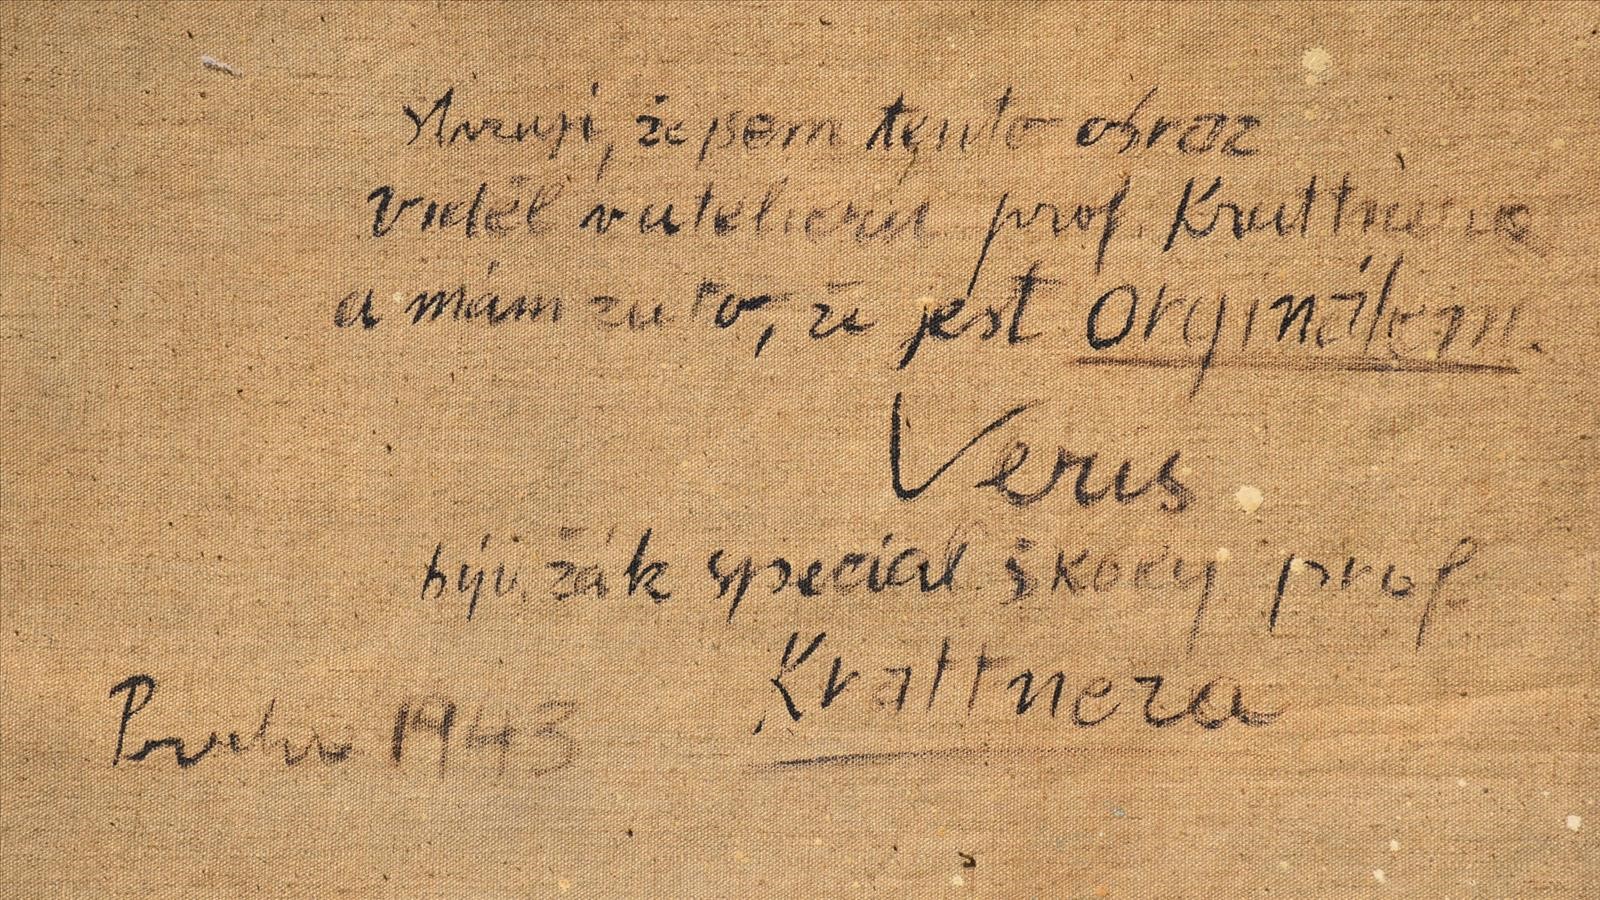 stvzuji, že jsem tento obraz
viděl v atelieru prof. Krattnera
a mám zato, že jest orginálem.
Verus
býv. žák speciál školy prof
Krattnera
Praha 1943